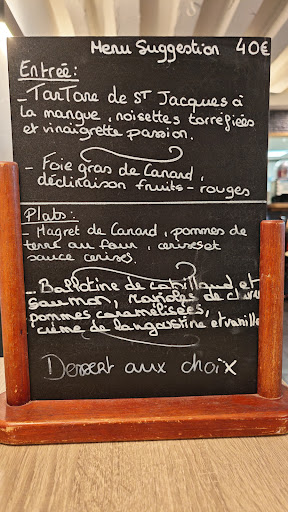 Menu Suggestion 40€
Entrée:
- TarTare de ST Jacques à
la mangue, noisettes torréfiées
et vinaigrette passion.
- Foie gras de Canard,
déclinaison fruits-rouges
Plats:
- Magret de Canard, pommes de
terre au four, cerises et
sauce cerises.
- Ballotine de cabillaud et
saumon, de
pommes caramélisées,
crème de langoustine et vanille
Dessert aux choix